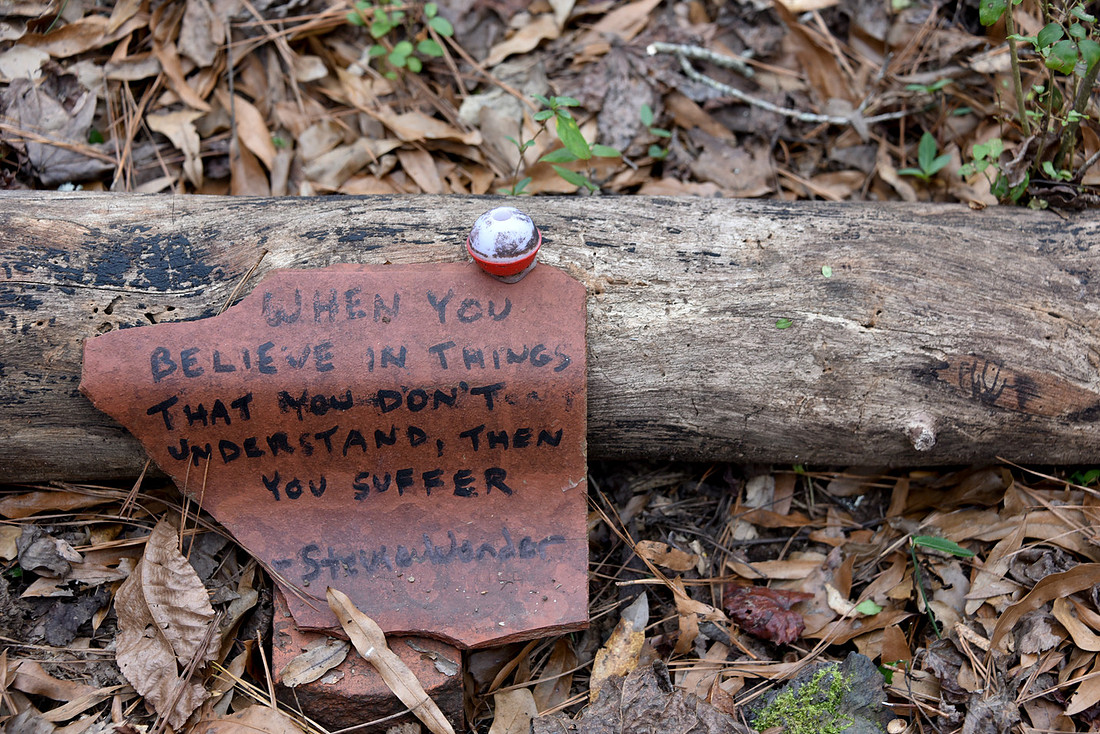 WHEN YOU
BELIEVE IN THINGS
THAT YOU DON'T
UNDERSTAND, THEN
YOU SUFFER
-Stevie Wonder